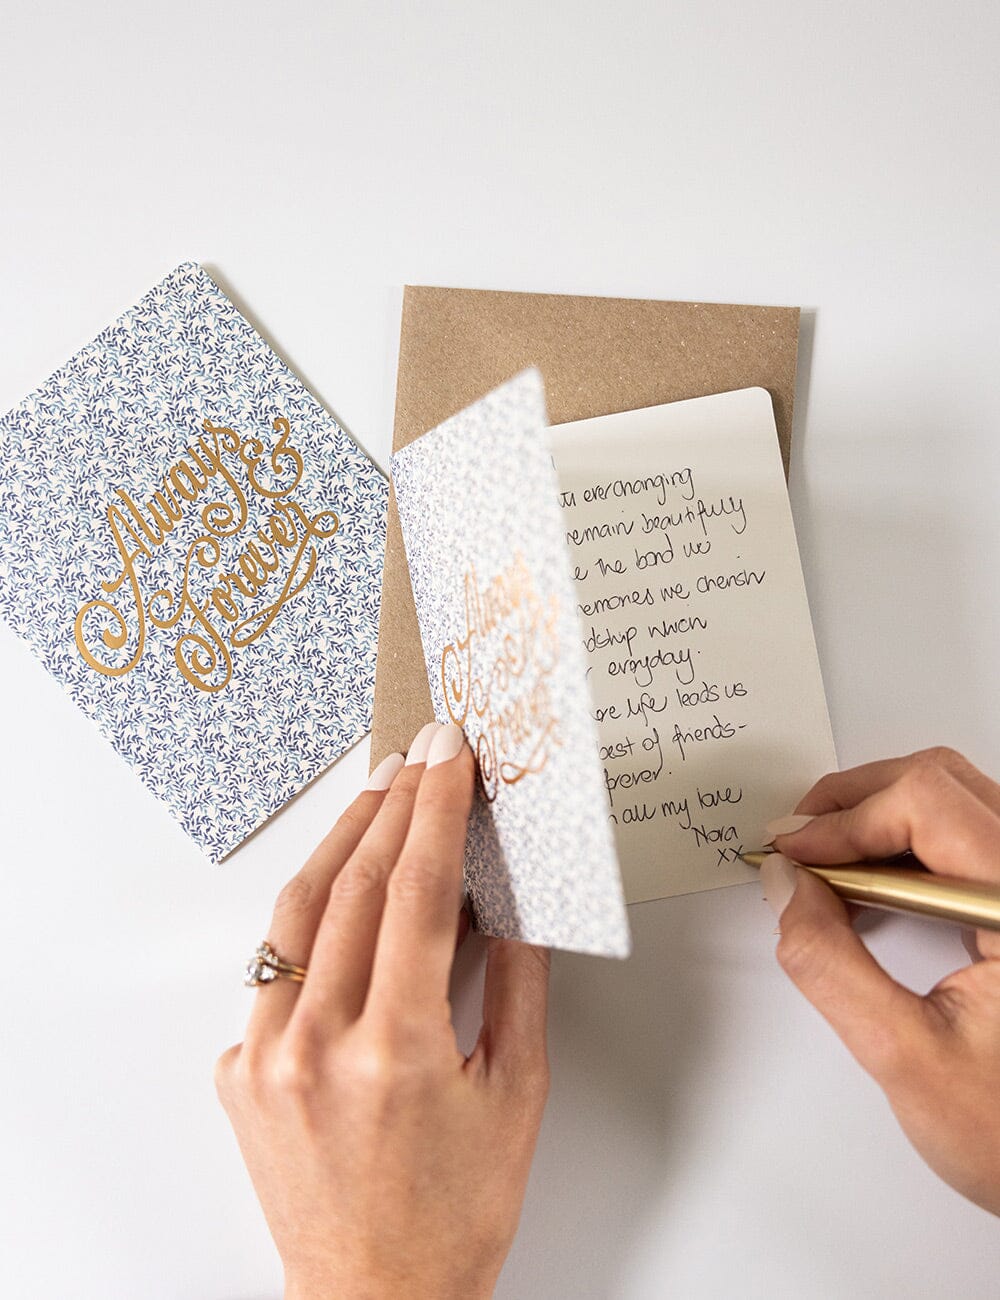 Always &
Forever
Always
& Forever
everchanging
remain beautifully
the bond we
memories we cherish
which
everyday.
life leads us
best of friends-
forever.
all my love
Nora
xx